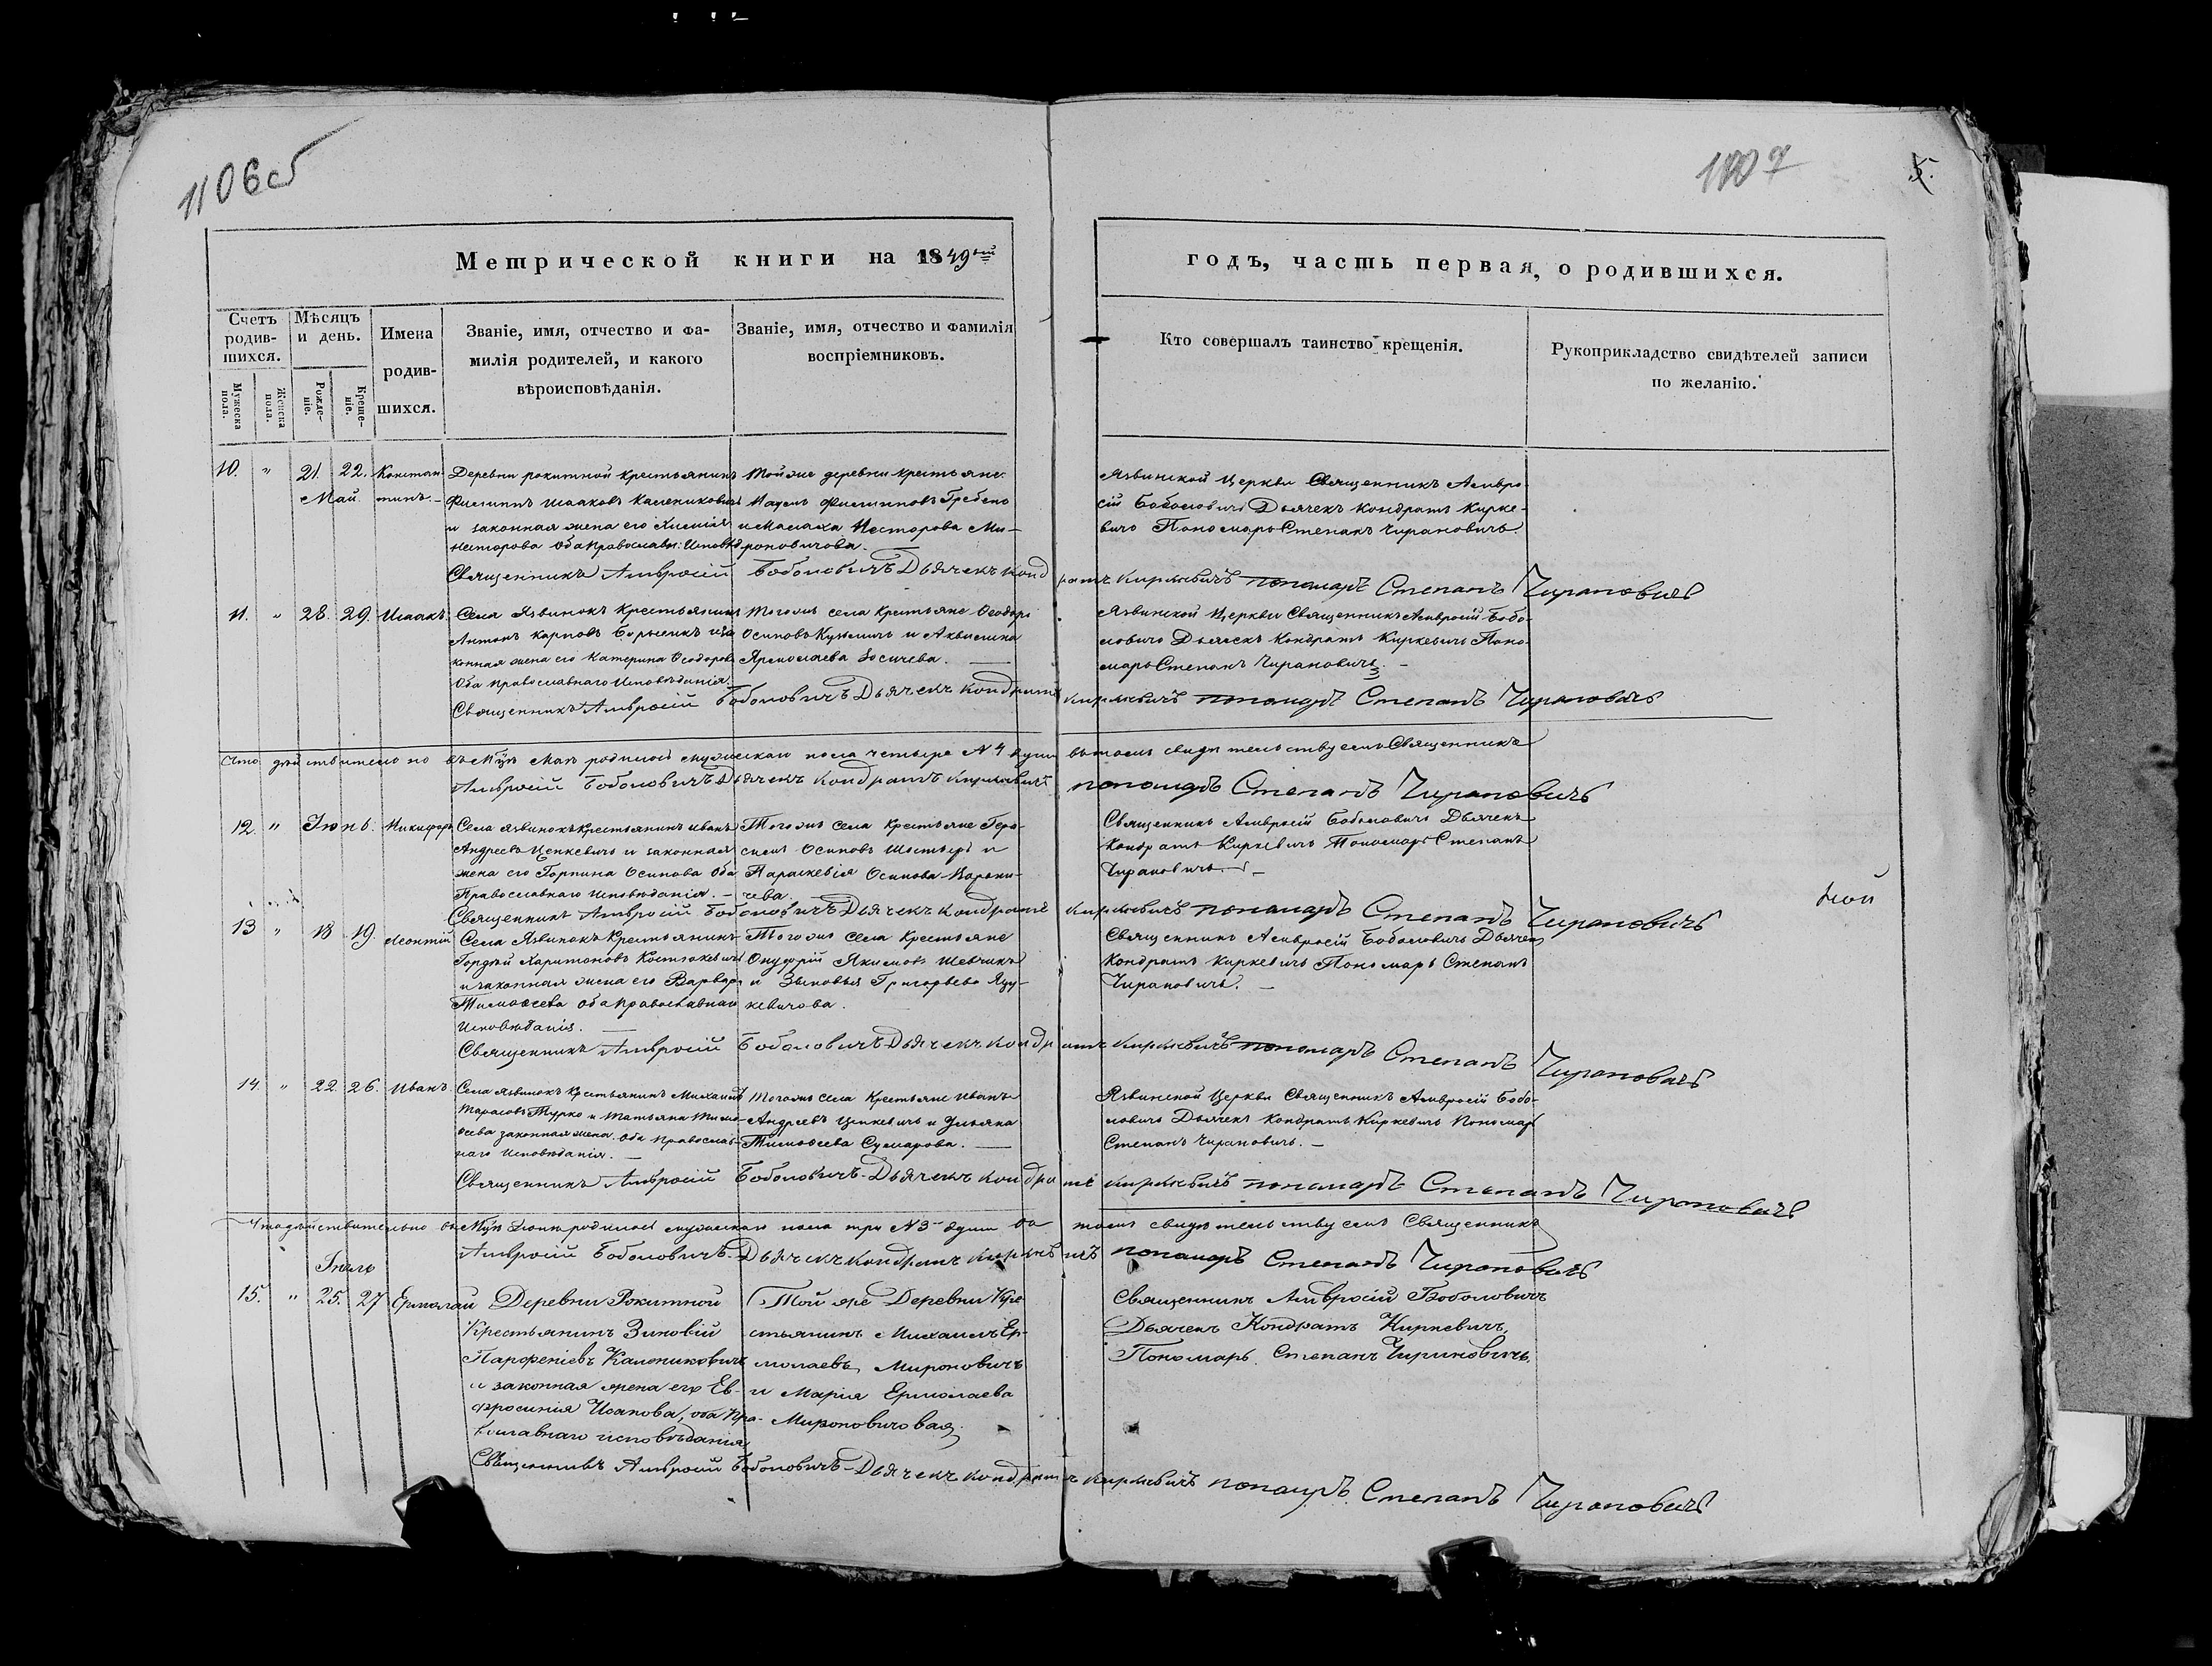 1106об
1107
5.
Метрической книги на 1849ый
годъ, часть первая, о родившихся.
Счетъ родившихся.
Мѣсяцъ и день.
Имена родившихся.
Званіе, имя, отчество и фамилія родителей, и какого вѣроисповѣданія.
Званіе, имя, отчество и фамилія воспріемниковъ.
Кто совершалъ таинство крещенія.
Рукоприкладство свидѣтелей записи по желанію.
Мужеска пола.
Женска пола.
Рожденіе.
Крещеніе.
10. " 21. 22. Констан-
Май. тинъ. –
Деревни рокитной крестьянинъ
Филиппъ Исааковъ Калениковичъ
и законная жена его
Несторова Оба Православн: Исповѣд
Той же деревни крестьяне
Филиповъ Гребено
и Несторова Ми-
роновичова.
Язвинской Церкви Священникъ Амвро-
сій Боболовичъ Дьячекъ Кондратъ Кирке-
вичъ Пономарь Степанъ Чирановичъ.
Священникъ Амвросій Боболовичъ Дьячекъ Кондратъ Киркевичъ пономарь Степанъ Чирановичъ
11. " 28. 29. Исаакъ
Села Язвинокъ Крестьянинъ
Антонъ Карповъ Борысикъ и за-
конная жена его Катерина Ѳеодоров
Оба православнаго Исповѣданія.
Тогожъ села Крестьяне Ѳеодоръ
Осиповъ Кузьмичъ и Аквилина
Ярмолаева
Язвинской Церкви Священникъ Амвросій Бобо-
ловичъ Дьячекъ Кондратъ Киркевичъ Поно-
марь Степанъ Чирановичъ. –
Священникъ Амвросій Боболовичъ Дьячекъ Кондратъ Киркевичъ пономарь Степанъ Чирановичъ
Что дѣйствительно въ Мцѣ Маѣ родилось мужескаго пола четыре № 4 души въ томъ свидѣтельствуемъ Священникъ
Амвросій Боболовичъ Дьячекъ Кондратъ Киркевичъ пономарь Степанъ Чирановичъ
12. " Іюнь. Никифоръ
Села Язвинокъ Крестьянинъ Иванъ
Андреевъ Цепкевичъ и законная
жена его Горпина Осипова Оба
Православнаго Исповѣданія. –
Тогожъ села Крестьяне Гера-
симъ Осиповъ и
Параскевія Осипова Ворони-
чева.
Священникъ Амвросій Боболовичъ Дьячекъ
Кондратъ Киркевичъ Пономарь Степанъ
Чирановичъ. –
ной
Священникъ Амвросій Боболовичъ Дьячекъ Кондратъ Киркевичъ пономарь Степанъ Чирановичъ
13 " 18 19. Леонтій
Села Язвинокъ Крестьянинъ
Гордѣй Харитоновъ Костюкевичъ
и законная жена его Варвара
Тимоѳеева оба православнаго
Исповѣданія.
Тогожъ села Крестьяне
Онуфрій Якимовъ Шевчикъ
и Зѣновья Григорьева Яцу-
кевичова.
Священникъ Амвросій Боболовичъ Дьячекъ
Кондратъ Киркевичъ Пономарь Степанъ
Чирановичъ. –
Священникъ Амвросій Боболовичъ Дьячекъ Кондратъ Киркевичъ пономарь Степанъ Чирановичъ
14. " 22. 26. Иванъ.
Села Язвинокъ Крестьянинъ Михаилъ
Тарасовъ Турко и Татьяна Тимо-
ѳеева законная жена. Оба Православ-
наго Исповѣданія.
Тогожъ села Крестьяне Иванъ
Андреевъ Цепкевичъ и Ульяна
Тимоѳеева Сумарова.
Язвинской Церкви Священникъ Амвросій Бобо-
ловичъ Дьячекъ Кондратъ Киркевичъ Пономарь
Степанъ Чирановичъ. –
Священникъ Амвросій Боболовичъ Дьячекъ Кондратъ Киркевичъ пономарь Степанъ Чирановичъ
Что дѣйствительно въ Мцѣ Іюнѣ родилось мужескаго пола три № 3 души въ томъ свидѣтельствуемъ Священникъ
Амвросій Боболовичъ Дьячекъ Кондратъ Киркевичъ пономарь Степанъ Чирановичъ
Іюль
15. " 25. 27 Ермолай
Деревни Рокитной
Крестьянинъ Зиновій
Парфеніевъ Калениковичъ
и законная жена его Ев-
фросинія Исакова, оба Пра-
вославнаго исповѣданія
Той же Деревни Кре-
стьянинъ Михаилъ Ер-
молаевъ Мироновичъ
и Марія Ермолаева
Мироновичовая.
Священникъ Амвросій Боболовичъ
Дьячекъ Кондратъ Киркевичъ,
Пономарь Степанъ Чириновичъ.
Священникъ Амвросій Боболовичъ Дьячекъ Кондратъ Киркевичъ пономарь Степанъ Чирановичъ